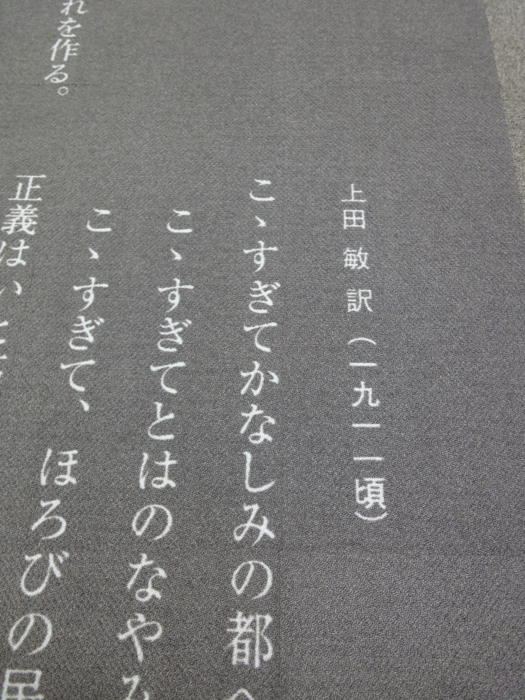 上田 敏 訳（一九一一頃）
こゝすぎてかなしみの都へ
こゝすぎてとはのなやみ
こゝすぎて、ほろびの民
正義はい
れを作る。